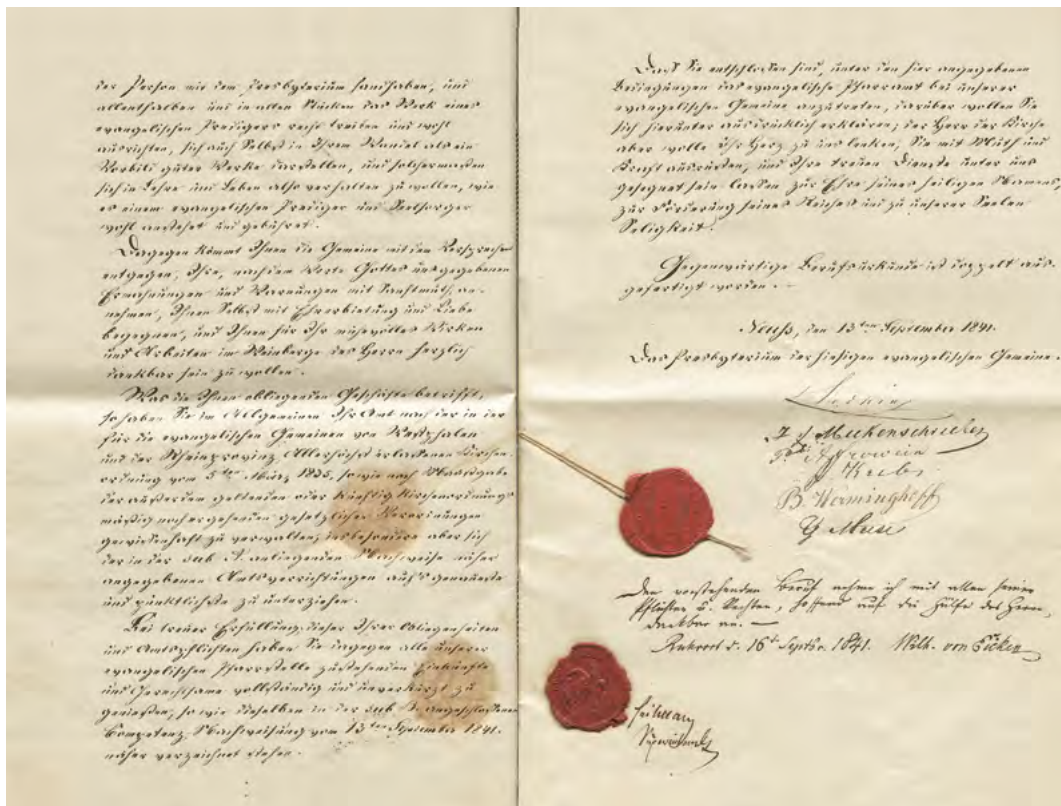 der Person mit dem Presbyterium handhaben, und
allenthalben und in allen Stücken das Werk eines
evangelischen Predigers recht treiben und wohl
ausrichten, sich auch Selbst in Ihrem Wandel als ein
Vorbild guter Werke darstellen, und solchermaßen
sich in Lehre und Leben also verhalten zu wollen, wie
es einem evangelischen Prediger und Seelsorger
wohl anstehet und gebühret.
Dagegen kommt Ihnen die Gemeine mit dem Versprechen
entgegen, Ihre, nach dem Worte Gottes uns gegebenen
Ermahnungen und Warnungen mit Sanftmuth, an-
nehmen, Ihnen Selbst mit Ehrerbietung und Liebe
begegnen, und Ihnen für Ihr mühevolles Wirken
und Arbeiten im Weinberge des Herrn herzlich
dankbar sein zu wollen.
Was die Ihnen obliegenden Geschäfte betrifft,
so haben Sie im Allgemeinen Ihr Amt nach der in der
für die evangelischen Gemeinen von Westphalen
und der Rheinprovinz Allerhöchst erlassenen Kirchen-
ordnung vom 5ten März 1835, so wie nach Maasgabe
der außerdem geltenden oder künftig kirchenordnungs-
mäßig noch ergehenden gesetzlichen Verordnungen
gewissenhaft zu verwalten, insbesondere aber sich
der in der sub A. anliegenden Nachweise näher
angegebenen Amtsverrichtungen auf's genaueste
und pünktlichste zu unterziehen.
Bei treuer Erfüllung dieser Ihrer Obliegenheiten
und Amtspflichten haben Sie dagegen alle unserer
evangelischen Pfarrstelle zustehenden Einkünfte
und Gerechtsame vollständig und unverkürzt zu
genießen, so wie dieselben in der sub B. angeschlossenen
Competenz-Nachweisung vom 13ten September 1841.
näher verzeichnet stehen.
Daß Sie entschlossen sind, unter den hier angegebenen
Bedingungen das evangelische Pfarramt bei unserer
evangelischen Gemeine anzutreten, darüber wollen Sie
sich hierunter ausdrücklich erklären; der Herr der Kirche
aber wolle Ihr Herz zu uns lenken, Sie mit Muth und
Kraft ausrüsten, und Ihre treuen Dienste unter uns
gesegnet sein lassen zur Ehre seines heiligen Namens,
zur Förderung seines Reiches und zu unserer Seelen
Seligkeit!
Gegenwärtige Berufsurkunde ist doppelt aus-
gefertigt worden. –
Neuß, den 13ten September 1841.
Das Presbyterium der hiesigen evangelischen Gemeine.
B. Werminghoff
Den vorstehenden Beruf nehme ich mit allen seinen
Pflichten u. Rechten, hoffend auf die Hülfe des Herrn,
dankbar an. –
Ruhrort d. 16t Septbr. 1841. Wilh. von Eicken